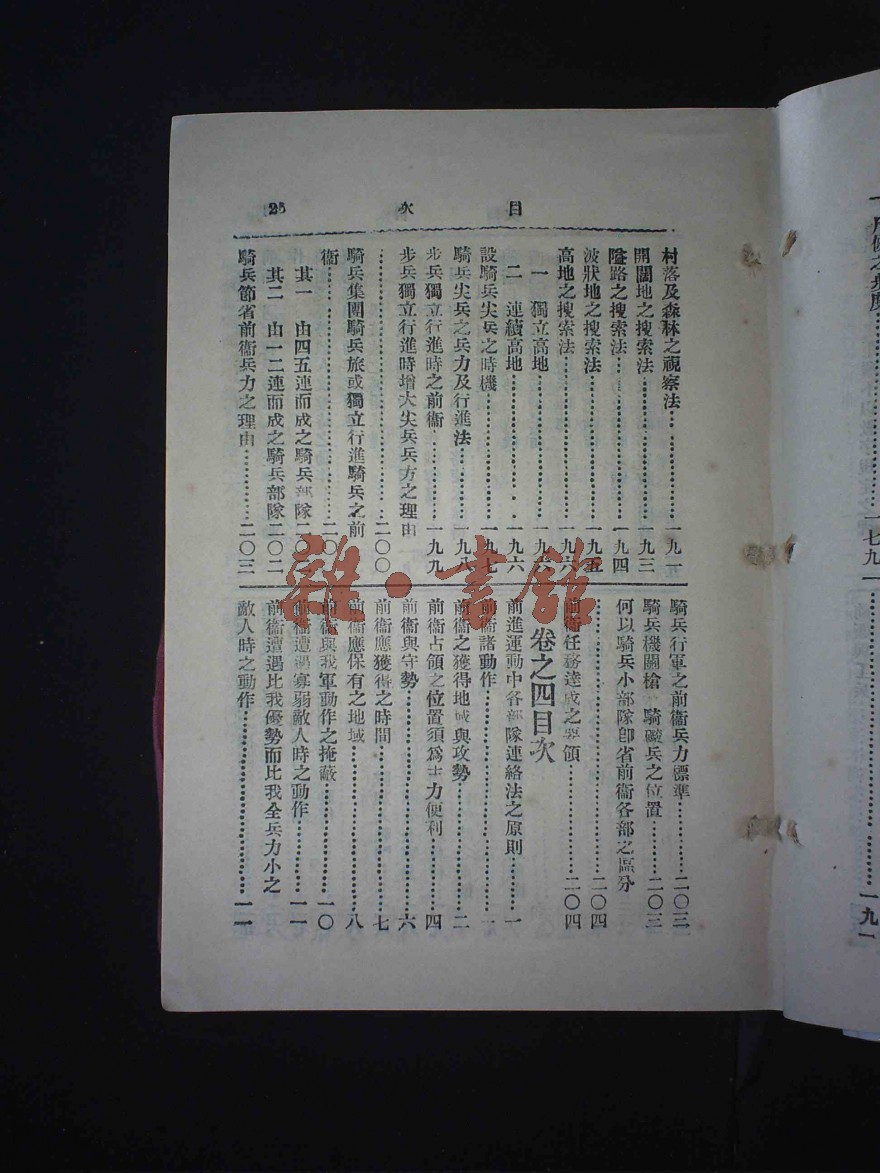 目次 25
村落及森林之視察法…………一九一
開闊地之搜索法…………一九三
隘路之搜索法…………一九四
波狀地之搜索法…………一九五
高地之搜索法…………一九六
一 獨立高地…………一九六
二 連續高地…………一九六
設騎兵尖兵之時機…………一九七
騎兵尖兵之兵力及行進法…………一九八
步兵獨立行進時之前衞…………一九九
步兵獨立行進時增大尖兵兵方之理由
…………二〇〇
騎兵集團騎兵旅或獨立行進騎兵之前
衞…………二〇
其一 由四五連而成之騎兵部隊二〇二
其二 由一二連而成之騎兵部隊二〇二
騎兵節省前衞兵力之理由…………二〇三
騎兵行軍之前衞兵力標準…………二〇三
騎兵機關槍 騎礮兵之位置…………二〇三
何以騎兵小部隊卽省前衞各部之區分
…………二〇四
前衞任務達成之要領…………二〇四
卷之四目次
前進運動中各部隊連絡法之原則…………一
前衞諸動作…………一
前衞之獲得地域與攻勢…………二
前衞占領之位置須爲主力便利…………四
前衞與守勢…………六
前衞應獲得之時間…………七
前衞應保有之地域…………八
前衞與我軍動作之掩蔽…………一〇
前衞遭遇寡弱敵人時之動作…………一一
前衞遭遇比我優勢而比我全兵力小之
敵人時之動作…………一一
雜·書館
七九
一九一